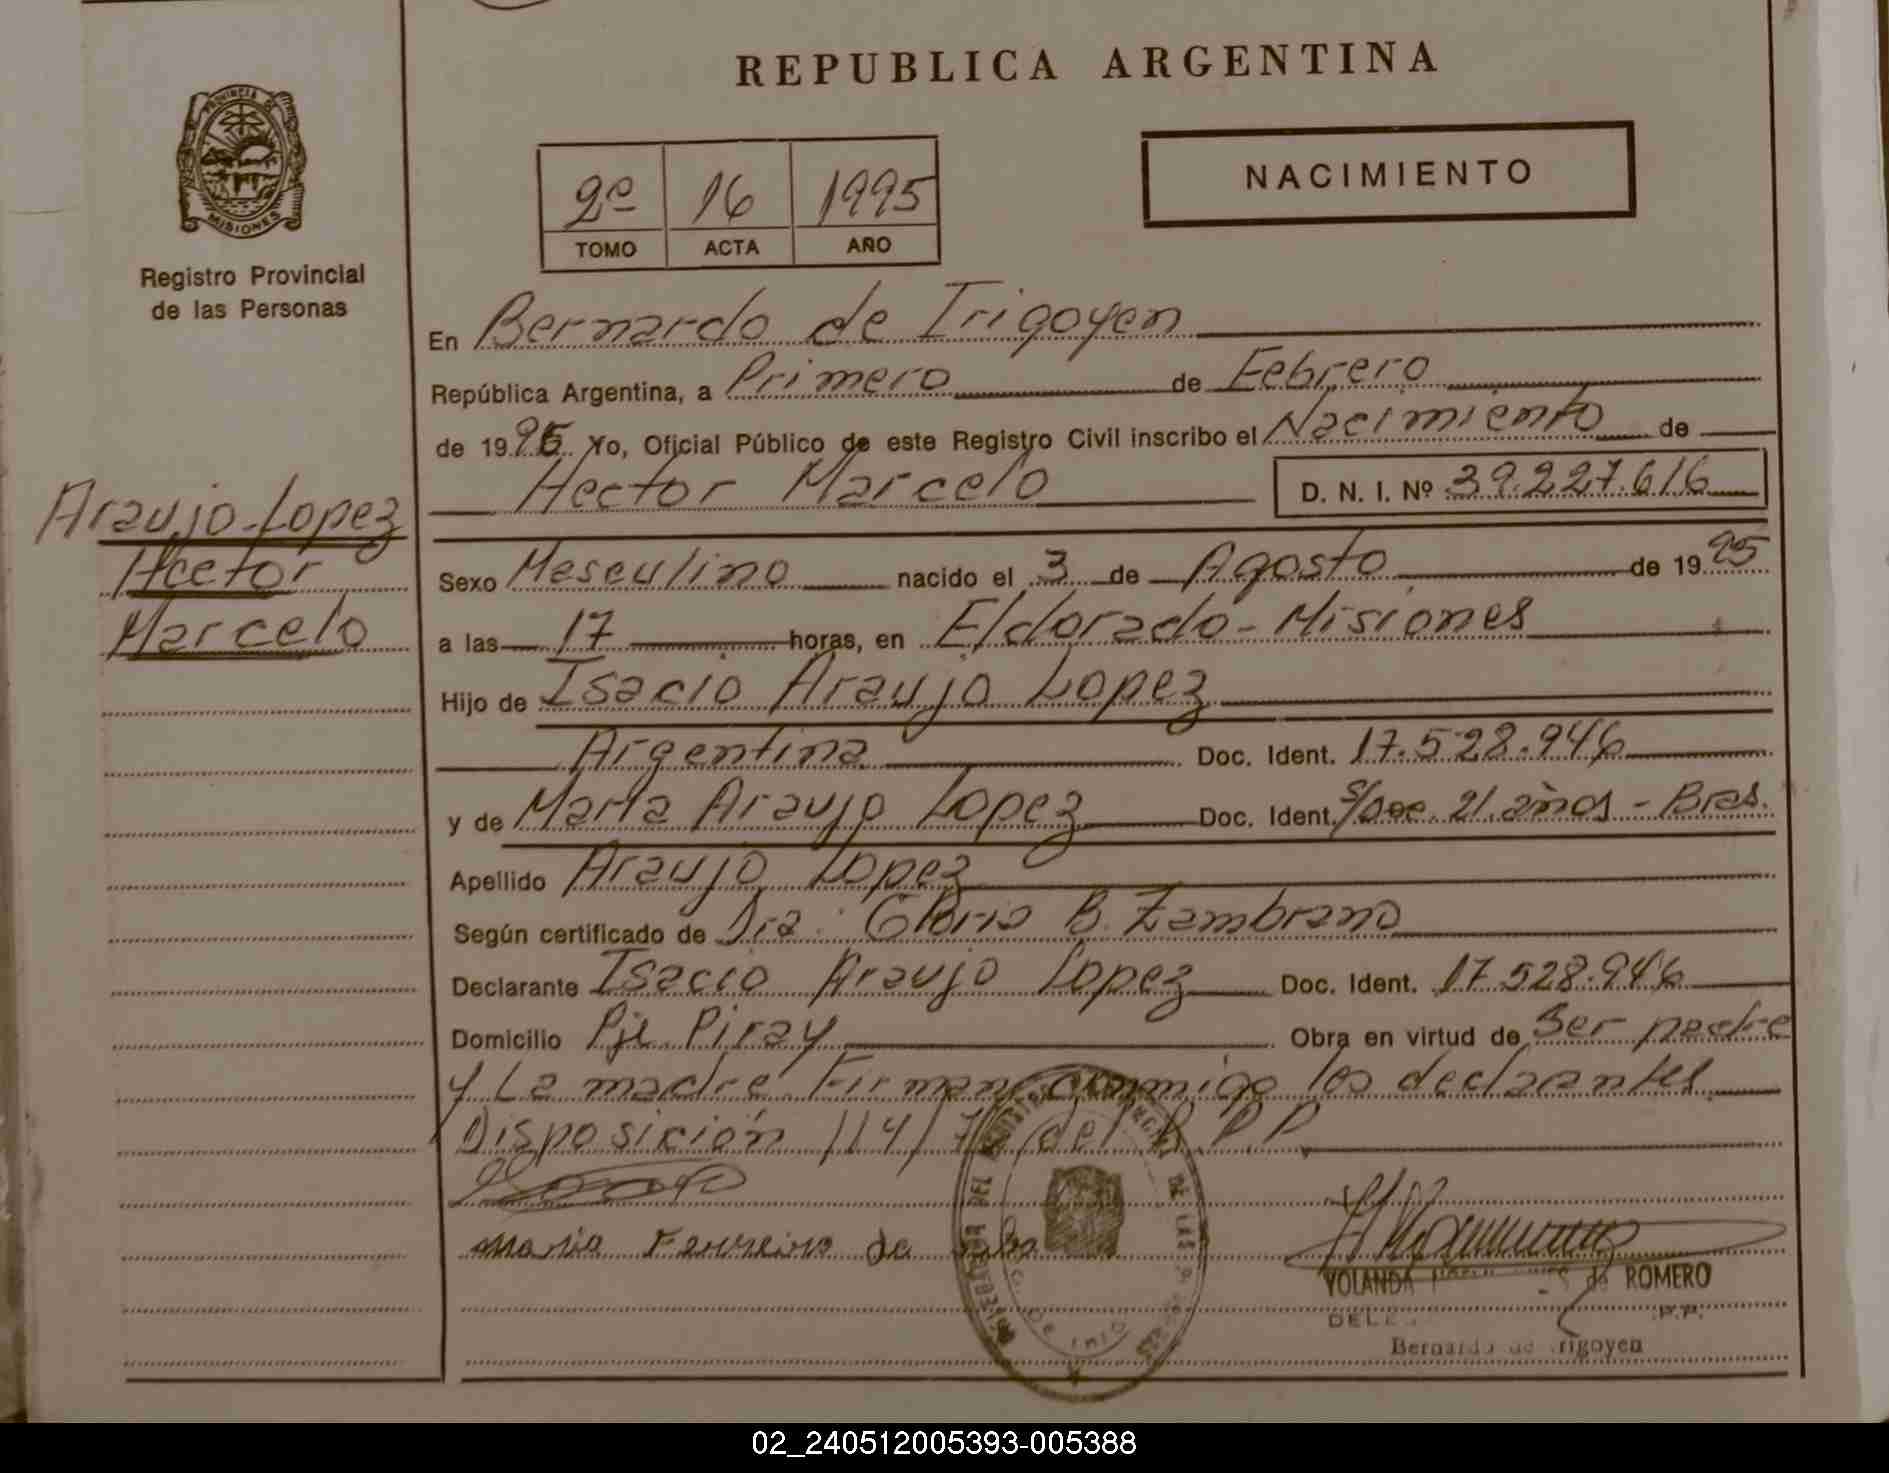 REPUBLICA ARGENTINA
PROVINCIA DE
MISIONES
Registro Provincial
de las Personas
2º 16 1995
TOMO ACTA AÑO
NACIMIENTO
En Bernardo de Irigoyen
República Argentina, a Primero de Febrero
de 19 96 Yo, Oficial Público de este Registro Civil inscribo el Nacimiento de
Hector Marcelo D. N. I. Nº 39.227.616
Araujo-Lopez
Hector
Marcelo
Sexo Mesculino nacido el 3 de Agosto de 19 95
a las 17 horas, en Eldorado - Misiones
Hijo de Isacio Araujo Lopez
Argentina Doc. Ident. 17.528.946
y de Marta Araujo Lopez Doc. Ident. s/Doc. 21 años - Bras.
Apellido Araujo Lopez
Según certificado de Dra. Gloria B. Zambrano
Declarante Isacio Araujo Lopez Doc. Ident. 17.528.946
Domicilio Pje. Piray Obra en virtud de Ser padre
y La madre Firman conmigo los declarantes
Disposición 114/ del R.P.P.
Maria Ferreira da
YOLANDA de ROMERO
Bernardo de Irigoyen
02_240512005393-005388